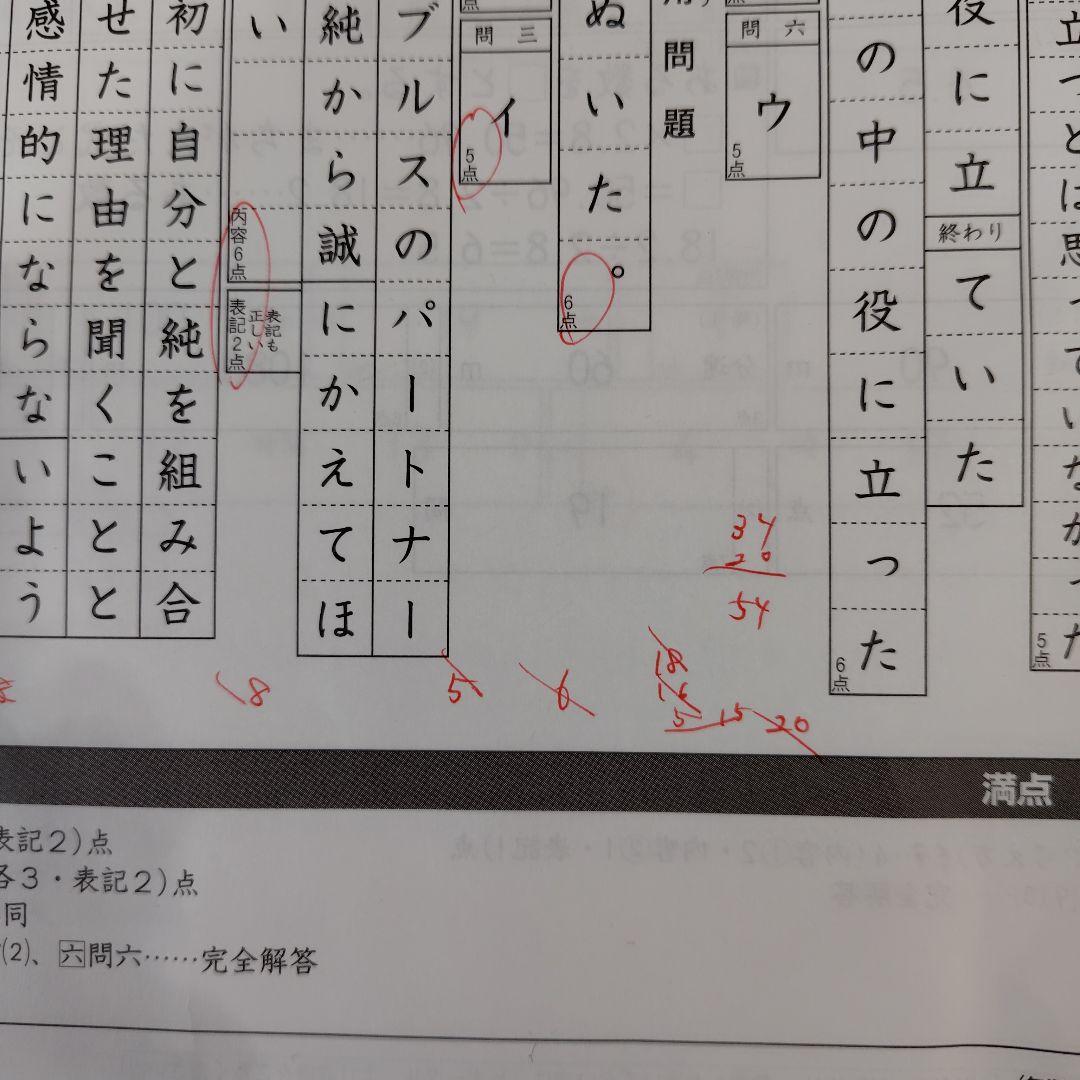 立つとは思っていなかった
5点
役に立
終わり
ていた
の中の役に立った
6点
問六
ウ
5点
問題
ぬいた。
6点
問三
イ
5点
ブルスのパートナー
純から誠にかえてほ
い
内容6点
表記も正しい
表記2点
初に自分と純を組み合
せた理由を聞くことと
感情的にならないよう
34
20
54
8
5
6
18
16
5 15 20
満点
表記2)点
各3・表記2)点
同
(2)、六問六……完全解答